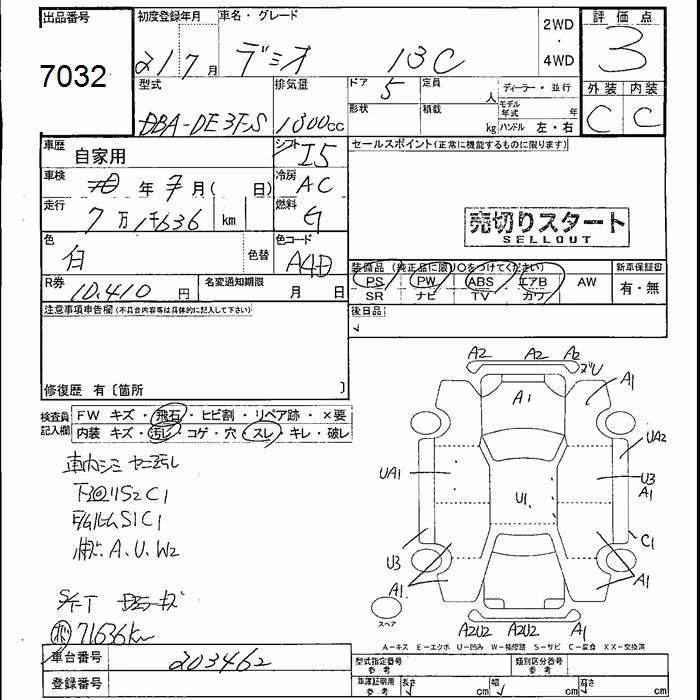 出品番号 初度登録年月 車名・グレード 2WD・4WD 評価点
7032 21 7月 デミオ 13C 3
型式 排気量 ドア 5 定員 人 ディーラー・並行 外装 内装
DBA-DE3FS 1300cc 形状 積載 kg モデル年式 年 ハンドル 左・右 C C
車歴 自家用 シフト I5 セールスポイント(正常に機能するものに限ります)
車検 年 7月( 日) 冷房 AC
走行 7万1千636 km 燃料 G
売切りスタート
SELLOUT
色 白 色替 色コード A4D
装備品 (純正品に限り○をつけてください) 新車保証書
PS PW ABS エアB AW 有・無
SR ナビ TV カワ
R券 10,410 円 名変通知期限 月 日
後日品
注意事項申告欄(不具合内容等は具体的に記入して下さい)
修復歴 有〔箇所 〕
検査員記入欄 FW キズ・飛石・ヒビ割・リペア跡・×要
内装 キズ・汚レ・コゲ・穴・スレ・キレ・破レ
車内シミ ヤニ汚レ
下回リS2C1
S1C1
A.U.W2
71636km
A2 A2 A2
A1 A1
UA2
UA1 U1 U3
A1
C1
U3
A1 A1
スペア A2U2 A2U2 A1
A-キズ E-エクボ U-凹み W-補修跡 S-サビ C-腐食 XX-交換済
車台番号 203462
登録番号
型式指定番号 参考 類別区分番号 参考
車庫証明用 参考 長さ cm 幅 cm 高さ cm